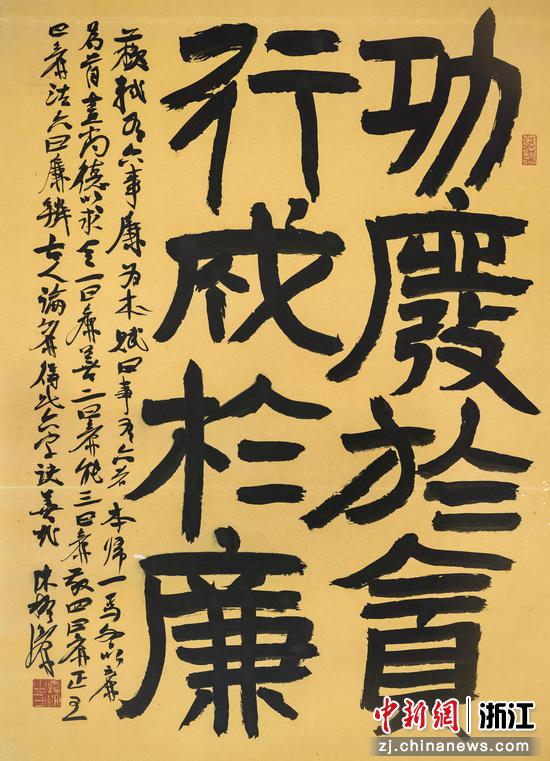 功廢於貪
行成於廉
蘇軾有六事廉為本賦曰事有六者本歸一焉各以廉
為首蓋尚德以求全一曰廉善二曰廉能三曰廉敬四曰廉正五
曰廉法六曰廉辨古人論廉得此六字訣善哉
中新網 浙江
zj.chinanews.com